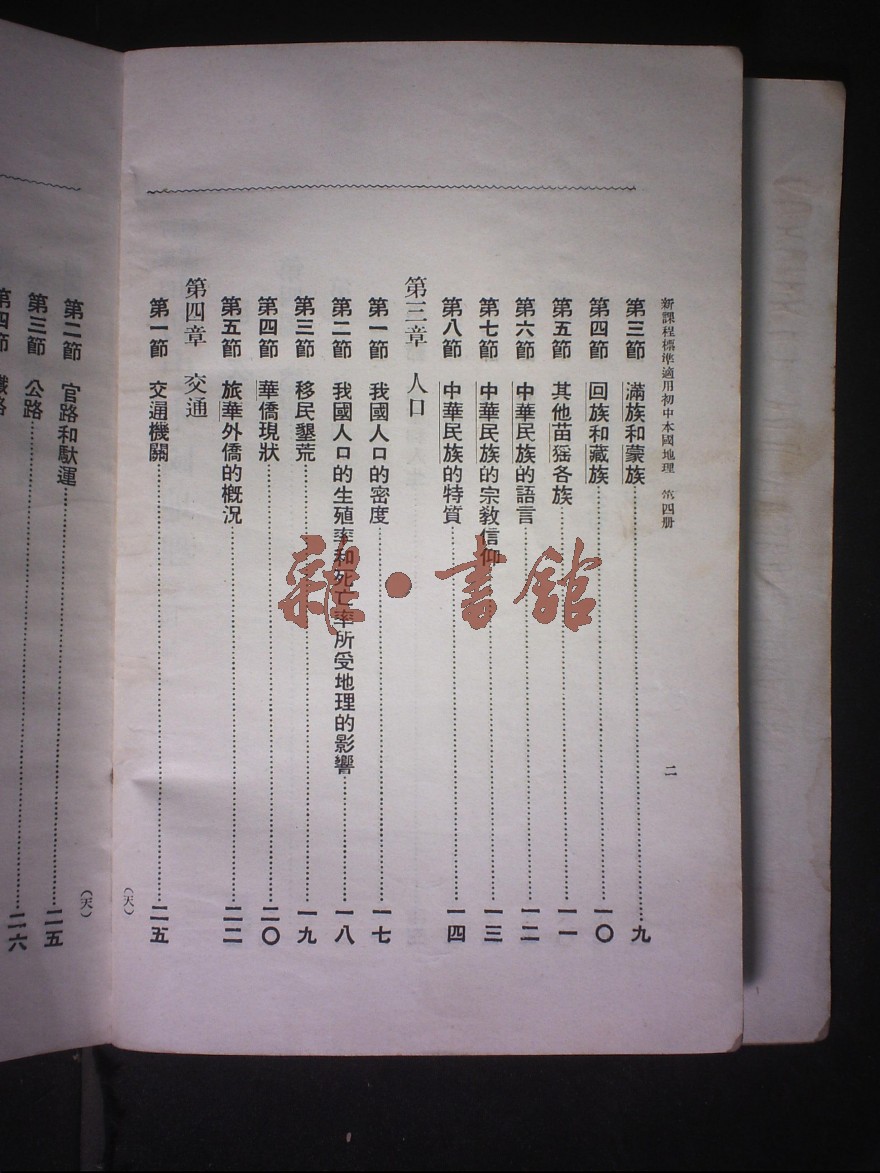 新課程標準適用初中本國地理 第四册
二
第三節 滿族和蒙族 九
第四節 回族和藏族 一〇
第五節 其他苗猺各族 一一
第六節 中華民族的語言 一二
第七節 中華民族的宗教信仰 一三
第八節 中華民族的特質 一四
第三章 人口
第一節 我國人口的密度 一七
第二節 我國人口的生殖率和死亡率所受地理的影響 一八
第三節 移民墾荒 一九
第四節 華僑現狀 二〇
第五節 旅華外僑的概況 二二
第四章 交通
第一節 交通機關 二五
(天)
(天)
第二節 官路和馱運 二五
第三節 公路 二六
第四節
雜·書館